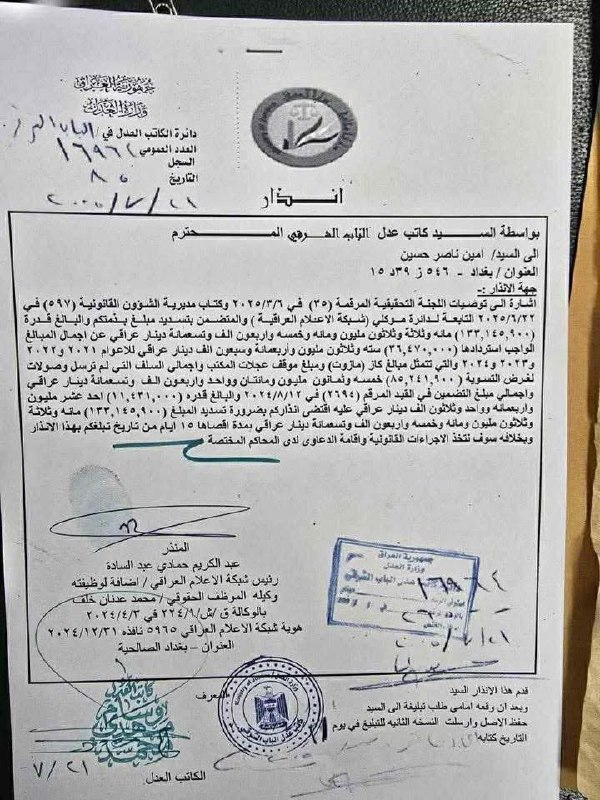 جمهورية العراق
وزارة العدل
دائرة الكاتب العدل في / الباب الشرقي
العدد العمومي
السجل
التاريخ
٢٠٢٥/٧/٢١
انذار
بواسطة السيد كاتب عدل الباب الشرقي المحترم
الى السيد/ امين ناصر حسين
العنوان / بغداد - ٥٤٦ ز ٣٩د ١٥
جهة الانذار :-
اشارة الى توصيات اللجنة التحقيقية المرقمة (٣٥) في ٢٠٢٥/٣/٦ وكتاب مديرية الشؤون القانونية (٥٩٧) في
٢٠٢٥/٦/٢٢ التابعة لدائرة موكلي (شبكة الاعلام العراقية) والمتضمن بتسديد مبلغ بذمتكم والبالغ قدرة
(١٣٣,١٤٥,٩٠٠) مانه وثلاثة وثلاثون مليون ومانه وخمسه واربعون الف وتسعمانة دينار عراقي عن اجمالي المبالغ
الواجب استردادها (٣٦,٤٧٠,٠٠٠) سته وثلاثون مليون واربعمانة وسبعون الف دينار عراقي للاعوام ٢٠٢١ و٢٠٢٢
و٢٠٢٣ و٢٠٢٤ والتي تتمثل مبالغ كاز (مازوت) ومبلغ موقف عجلات المكتب واجمالي السلف التي لم ترسل وصولات
لغرض التسوية (٨٥,٢٤١,٩٠٠) خمسه وثمانون مليون ومانتان وواحد واربعون الف وتسعمانة دينار عراقي
واجمالي مبلغ التضمين في القيد المرقم (٢٦٩٤) في ٢٠٢٤/٨/١٢ والبالغ قدره (١١,٤٣١,٠٠٠) احد عشر مليون
واربعمانه وواحد وثلاثون الف دينار عراقي عليه اقتضى انذاركم بضرورة تسديد المبلغ (١٣٣,١٤٥,٩٠٠) مانه وثلاثة
وثلاثون مليون ومانه وخمسه واربعون الف وتسعمانة دينار عراقي بمدة اقصاها ١٥ ايام من تاريخ تبلغكم بهذا الانذار
وبخلافه سوف نتخذ الاجراءات القانونية واقامة الدعاوى لدى المحاكم المختصة
المنذر
عبد الكريم حمادي عبد السادة
رئيس شبكة الاعلام العراقي / اضافة لوظيفته
وكيله الموظف الحقوقي / محمد عدنان خلف
بالوكالة ق /ش/٢٢٤٩ في ٢٠٢٤/٤/٣
هوية شبكة الاعلام العراقي ٥٩٦٥ نافذه ٢٠٢٤/١٢/٣١
العنوان – بغداد الصالحية
جمهورية العراق
وزارة العدل
الباب الشرقي
قدم هذا الانذار السيد
وبعد ان رفعه امامي طلب تبليغة الى السيد
حفظ الاصل وارسلت النسخه الثانيه للتبليغ في يوم
التاريخ كتابه
المعرف
الكاتب العدل
٧/٢١